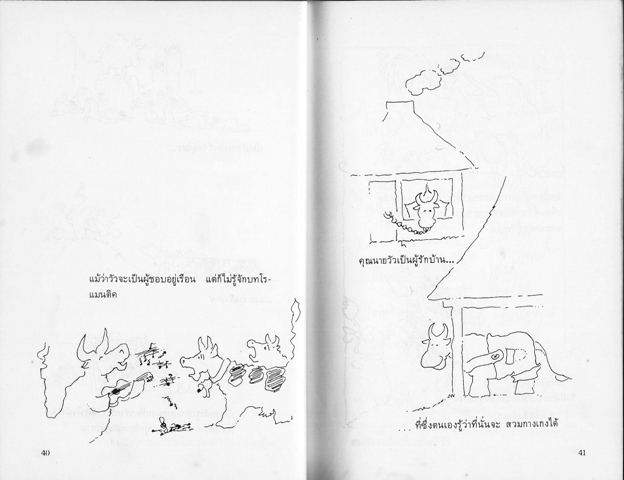 แม้ว่าวัวจะเป็นผู้ชอบอยู่เรือน แต่ก็ไม่รู้จักบทโร-
แมนติค
40
คุณนายวัวเป็นผู้รักบ้าน...
... ที่ซึ่งตนเองรู้ว่าที่นั่นจะ สวมกางเกงได้
41